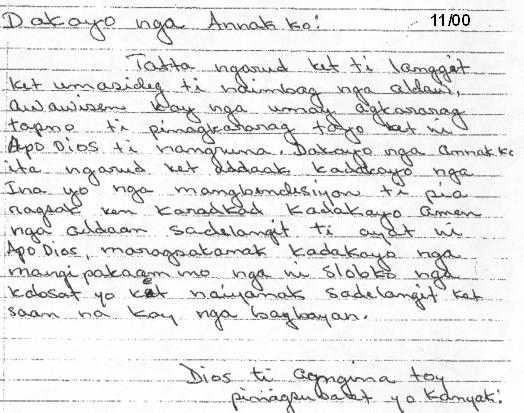 Dakayo nga Annak ko: 11/00
Tatta ngarud ket ti langgit
ket umasideg ti naimbag nga aldaw,
awawisen kay nga umay agkararag
tapno ti pinagkararag tayo ket ni
Apo Dios ti nangruna. Dakayo nga annak ko
ita ngarud ket addaak kadakayo nga
Ina yo nga mangbendisiyon ti pia
ragsak ken karadkad kadakayo amen
nga addaan sadelangit ti ayat ni
Apo Dios, maragsakanak kadakayo nga
mangipakaammo nga ni Slobko nga
kabsat yo ket naiyanak sadelangit ket
saan na kay nga baybayan.
Dios ti agngina toy
pinagsubalit yo kanyak: